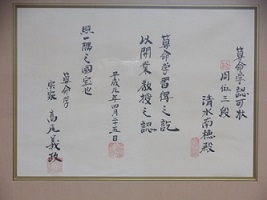 算命学認可状
同位三段
清水南穂殿
算命学習得之記
以開業教授之認
平成九年四月二十五日
照一隅之國宝也
算命学
宗家 高尾義政